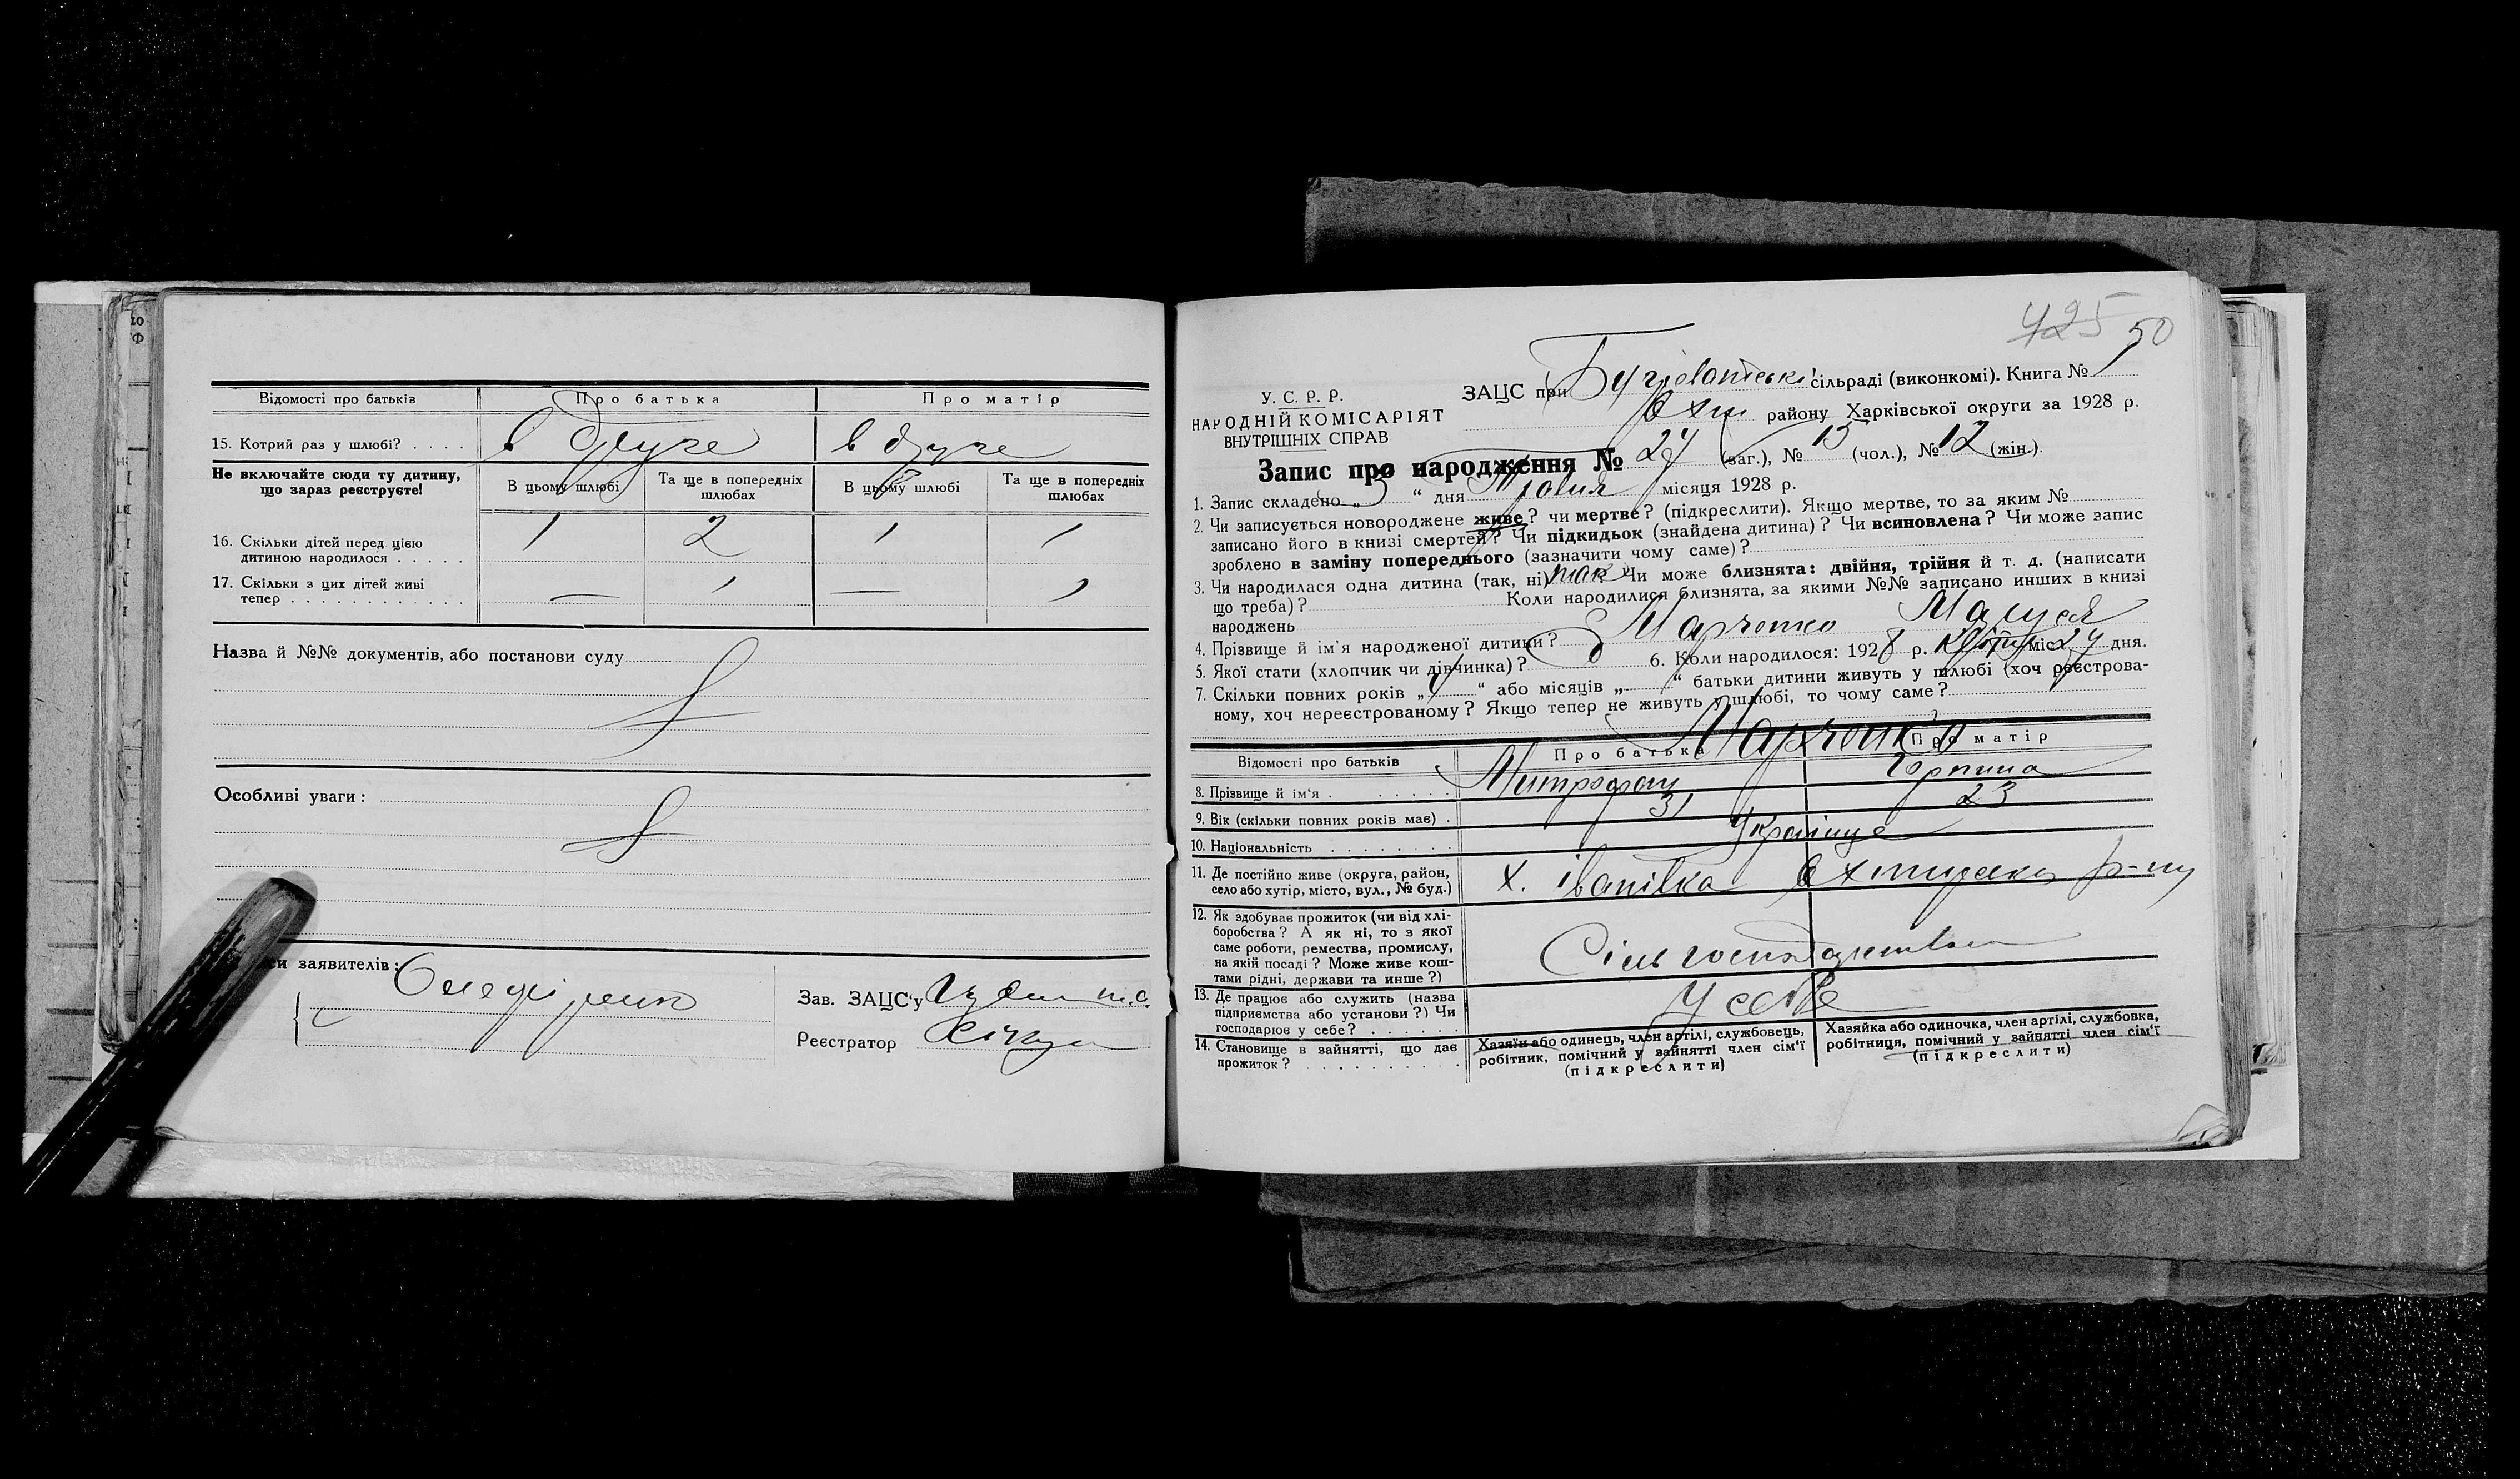 Відомості про батьків
Про батька
Про матір
15. Котрий раз у шлюбі? . . . .
в друге
в друге
Не включайте сюди ту дитину,
що зараз реєструєте!
В цьому шлюбі
Та ще в попередніх
шлюбах
В цьому шлюбі
Та ще в попередніх
шлюбах
16. Скільки дітей перед цією
дитиною народилося . . . . .
1
2
1
1
17. Скільки з цих дітей живі
тепер . . . . . . . . . . . .
—
1
—
1
Назва й №№ документів, або постанови суду
Особливі уваги:
си заявителів:
Зав. ЗАЦС'у
Реєстратор
425 50
У. С. Р. Р.
НАРОДНІЙ КОМІСАРІЯТ
ВНУТРІШНІХ СПРАВ
ЗАЦС при сільраді (виконкомі). Книга №
Охт району Харківської округи за 1928 р.
Запис про народження № 27 (заг.), № 15 (чол.), № 12 (жін.).
1. Запис складено „3“ дня Травня місяця 1928 р.
2. Чи записується новороджене живе? чи мертве? (підкреслити). Якщо мертве, то за яким №
записано його в книзі смертей? Чи підкидьок (знайдена дитина)? Чи всиновлена? Чи може запис
зроблено в заміну попереднього (зазначити чому саме)?
3. Чи народилася одна дитина (так, ні) так Чи може близнята: двійня, трійня й т. д. (написати
що треба)? Коли народилися близнята, за якими №№ записано инших в книзі
народжень
4. Прізвище й ім'я народженої дитини? Марченко Маруся
5. Якої стати (хлопчик чи дівчинка)? д 6. Коли народилося: 1928 р. Квітня міс. 24 дня.
7. Скільки повних років „4“ або місяців „ “ батьки дитини живуть у шлюбі (хоч реєстрова-
ному, хоч нереєстрованому? Якщо тепер не живуть у шлюбі, то чому саме?
Відомості про батьків
Про батька
Про матір
Марченко
8. Прізвище й ім'я . . . . . .
Митрофан
Горпина
9. Вік (скільки повних років має) .
31
23
10. Національність . . . . . . . .
Українці
11. Де постійно живе (округа, район,
село або хутір, місто, вул., № буд.)
х. Іванівка Охтирсько р-ну
12. Як здобуває прожиток (чи від хлі-
боробства? А як ні, то з якої
саме роботи, ремества, промислу,
на якій посаді? Може живе кош-
тами рідні, держави та инше?)
Сільгосподарством
13. Де працює або служить (назва
підприємства або установи?) Чи
господарює у себе? . . . . . .
У себе
14. Становище в зайнятті, що дає
прожиток? . . . . . . . . . .
Хазяїн або одинець, член артілі, службовець,
робітник, помічний у зайнятті член сім'ї
(підкреслити)
Хазяйка або одиночка, член артілі, службовка,
робітниця, помічний у зайнятті член сім'ї
(підкреслити)